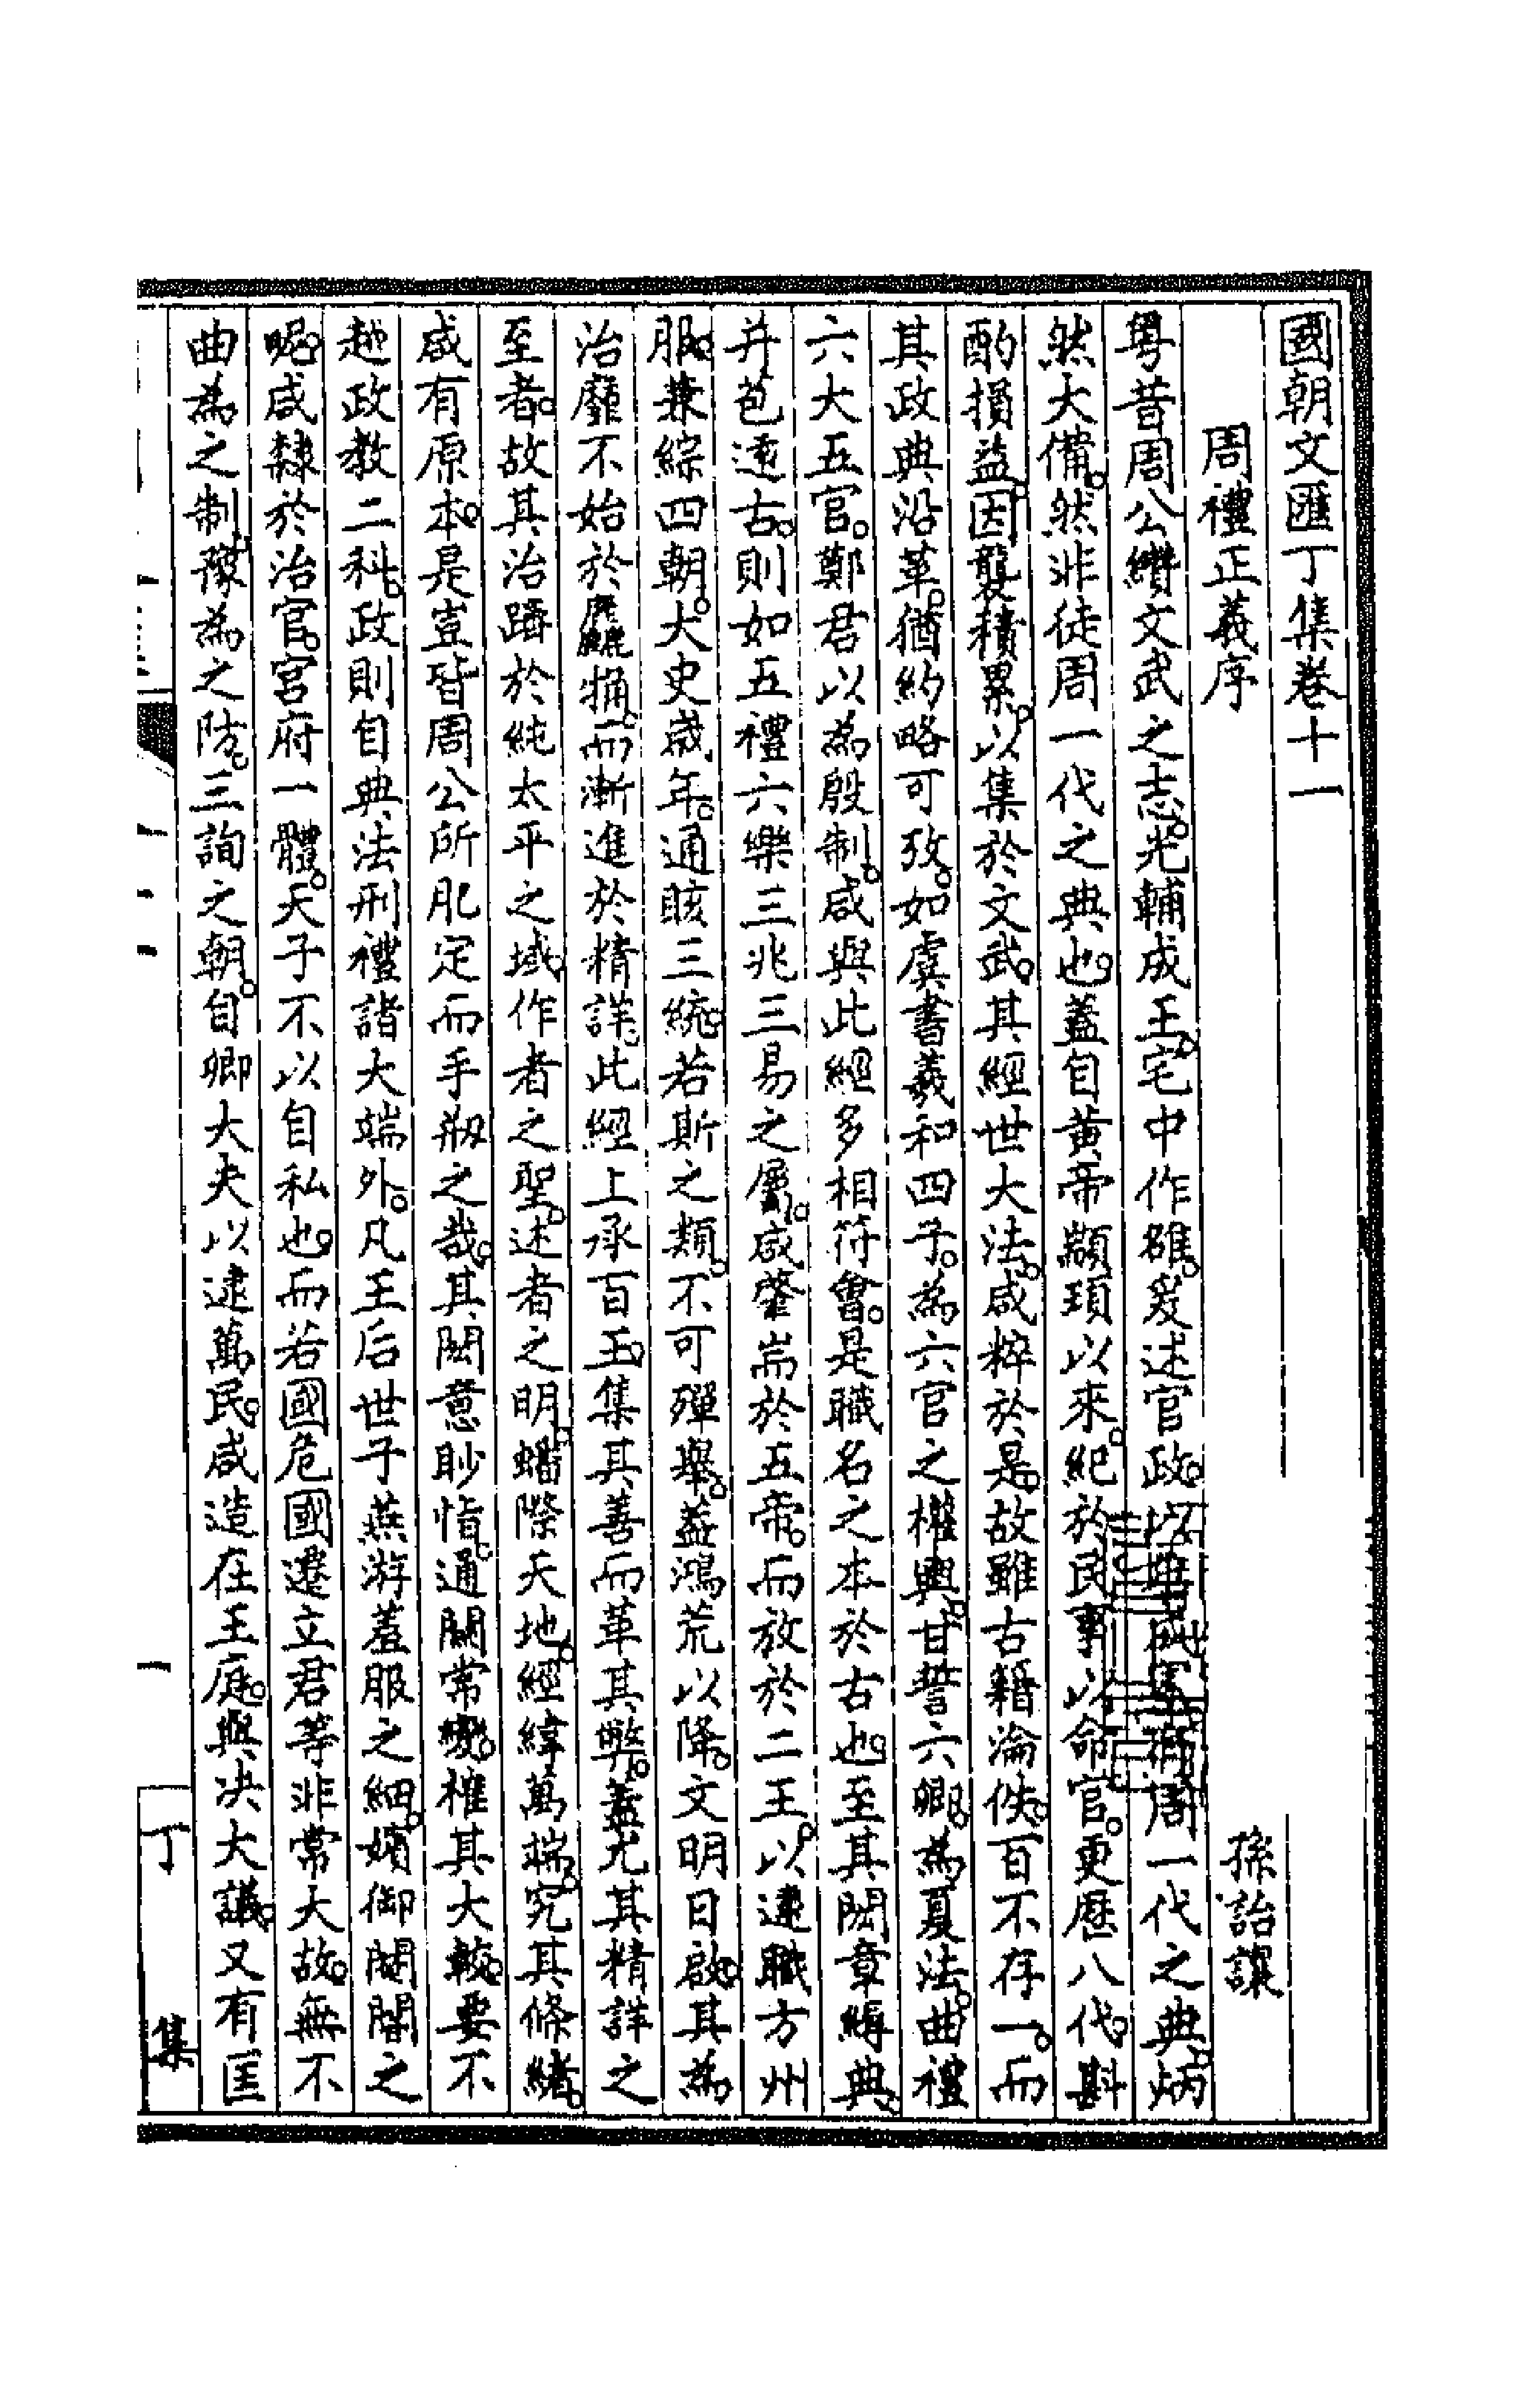 國朝文匯丁集卷十一
周禮正義序
孫詒讓
粤昔周公纘文武之志。光輔成王。宅中作雒。爰述官政。以垂成憲。有周一代之典。炳
然大備。然非徒周一代之典也。蓋自黃帝顓頊以來。紀於民事以命官。更歷八代。斟
酌損益。因襲積累。以集於文武。其經世大法。咸粹於是。故雖古籍淪佚。百不存一。而
其政典沿革。猶約略可攷。如虞書羲和四子。為六官之權輿。甘誓六卿。為夏法。曲禮
六大五官。鄭君以為殷制。咸與此經多相符會。是職名之本於古也。至其閎章縟典。
并苞遠古。則如五禮六樂三兆三易之屬。咸肇耑於五帝。而放於二王。以逮職方州
服。兼綜四朝。大史歲年。通晐三統。若斯之類。不可殫舉。蓋鴻荒以降。文明日啟。其為
治靡不始於麤觕。而漸進於精詳。此經上承百王。集其善而革其弊。蓋尤其精詳之
至者。故其治躋於純太平之域。作者之聖。述者之明。蟠際天地。經緯萬耑。究其條緒。
咸有原本。是豈皆周公所肊定而手剙之哉。其閎意眇恉。通關常變。榷其大較。要不
越政教二科。政則自典法刑禮諸大端外。凡王后世子燕游羞服之細。嬪御閽閹之
昵。咸隸於治官。宮府一體。天子不以自私也。而若國危國遷立君等非常大故。無不
曲為之制。豫為之防。三詢之朝。自卿大夫以逮萬民。咸造在王庭。與決大議。又有匡
丁
集